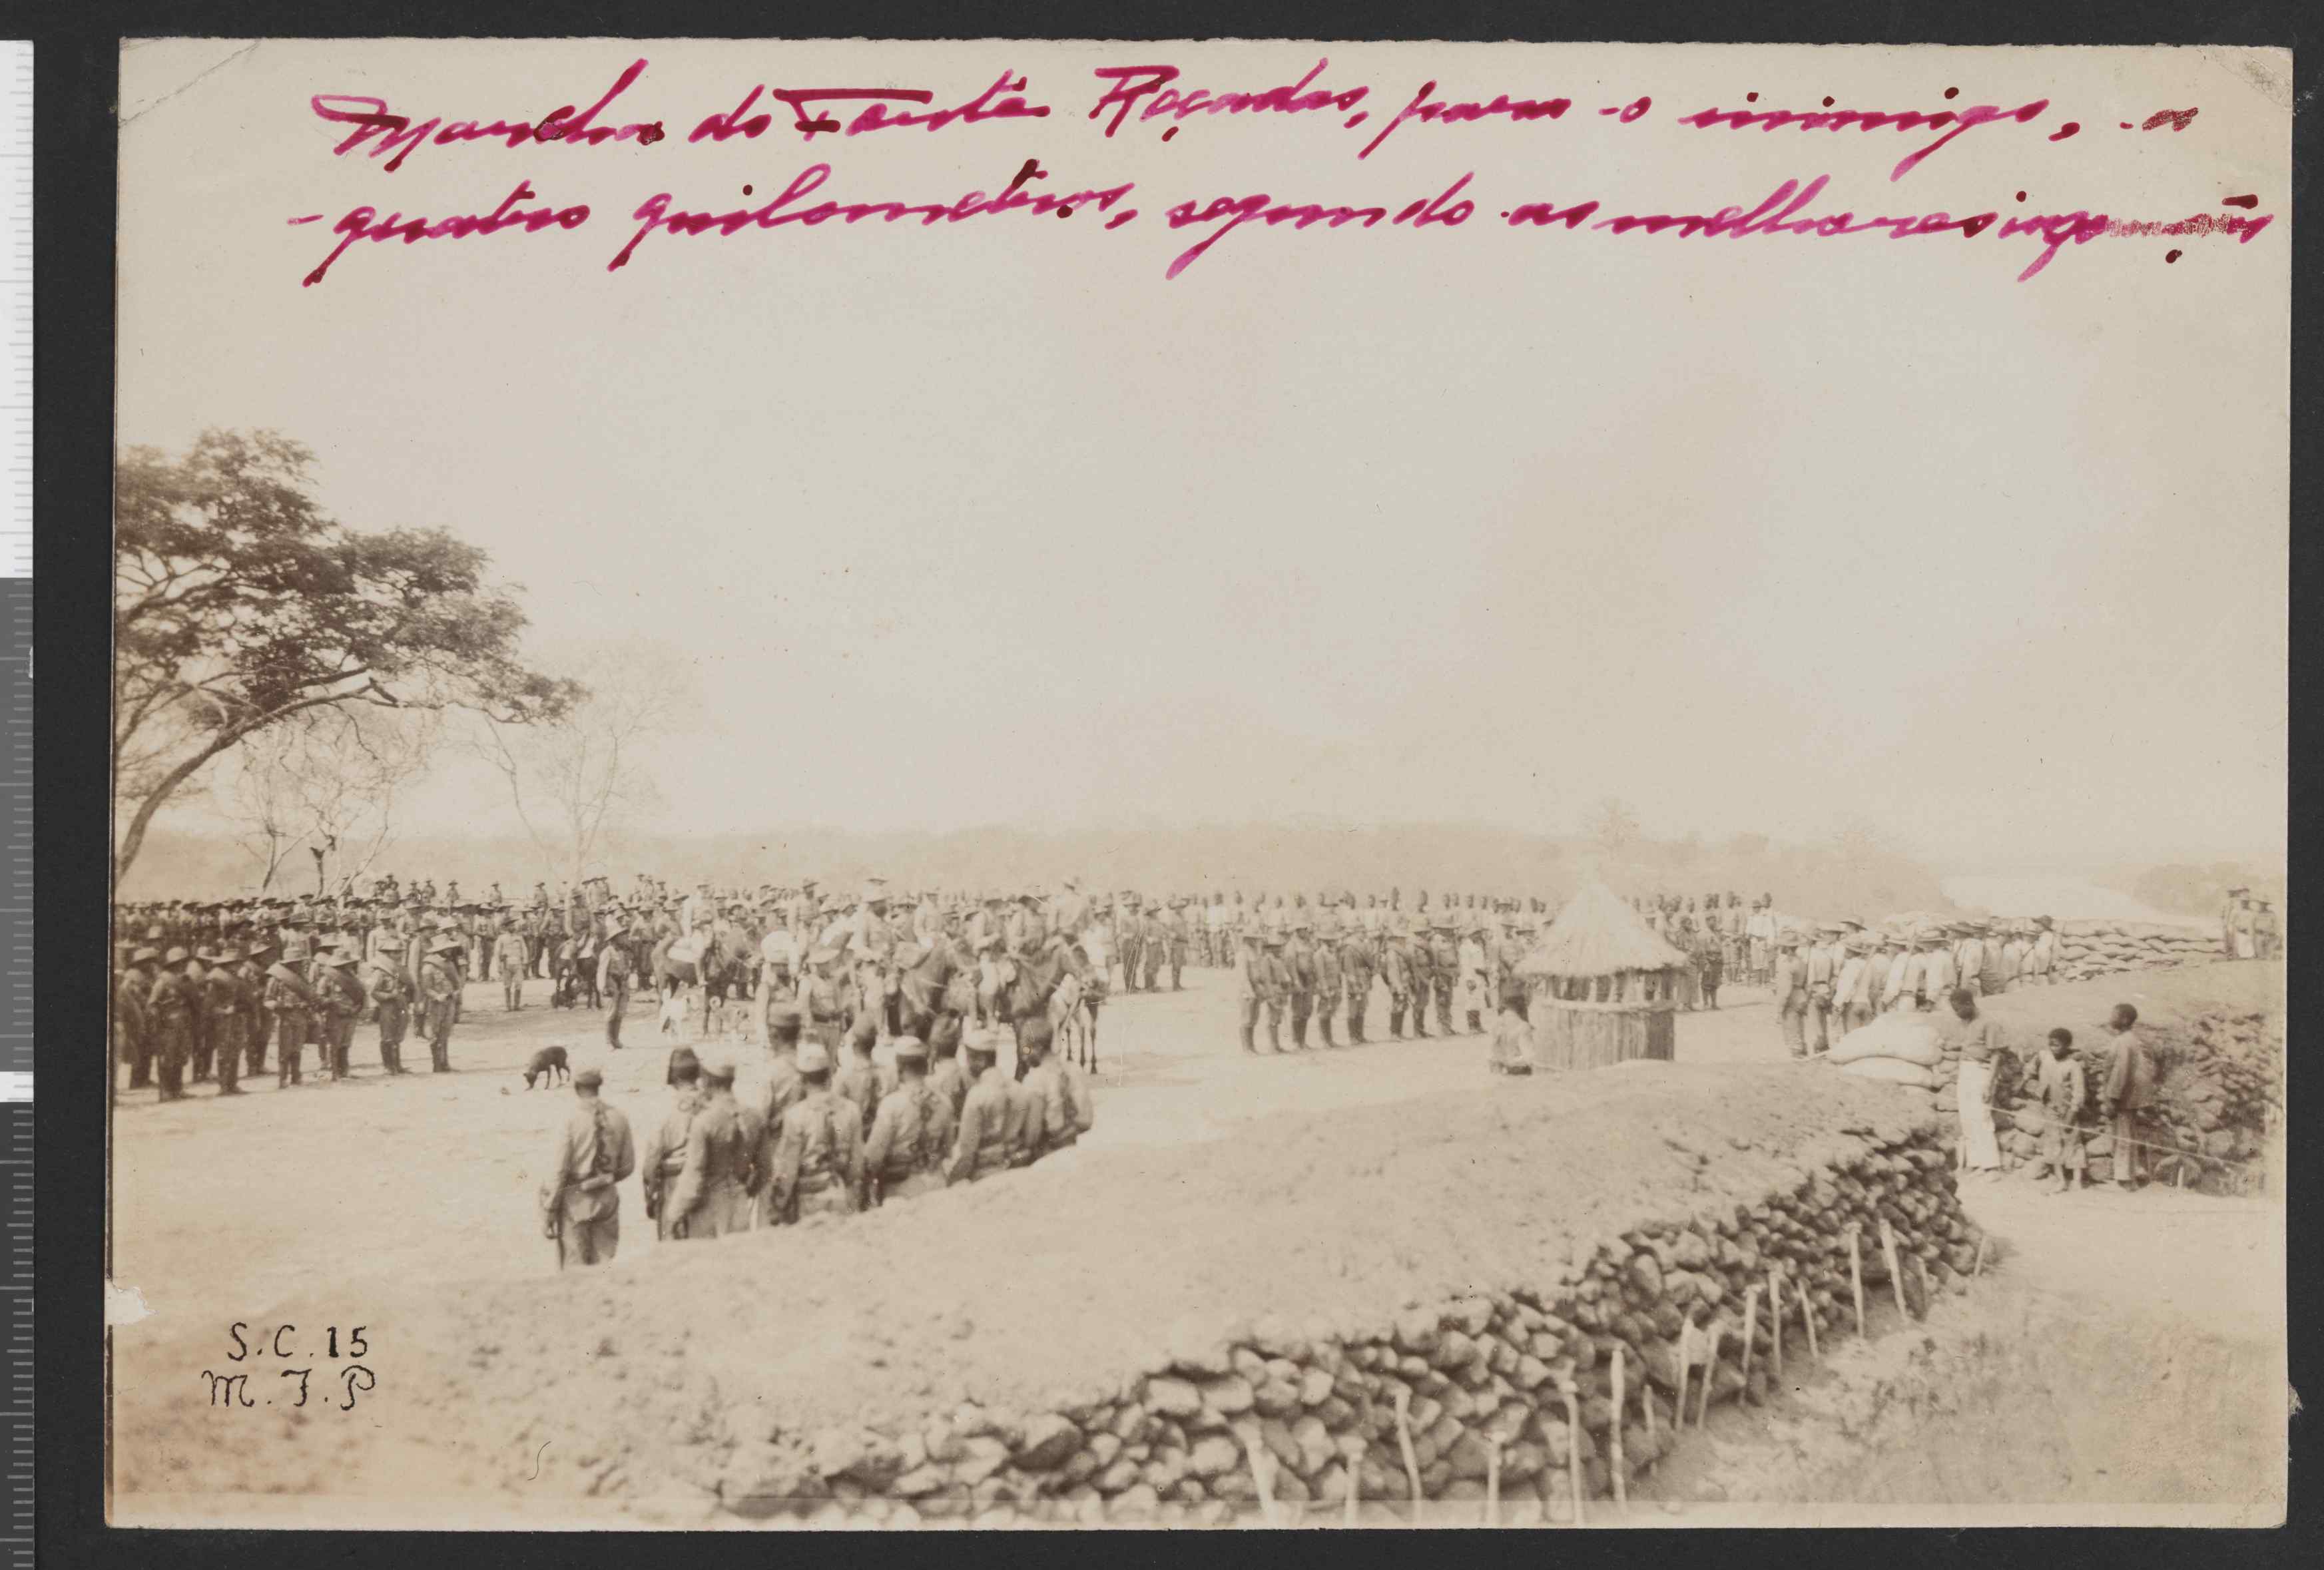 Marcha do Forte Roçadas, para o inimigo, a
quatro quilometros, segundo as melhores informações
S.C.15
M.I.P